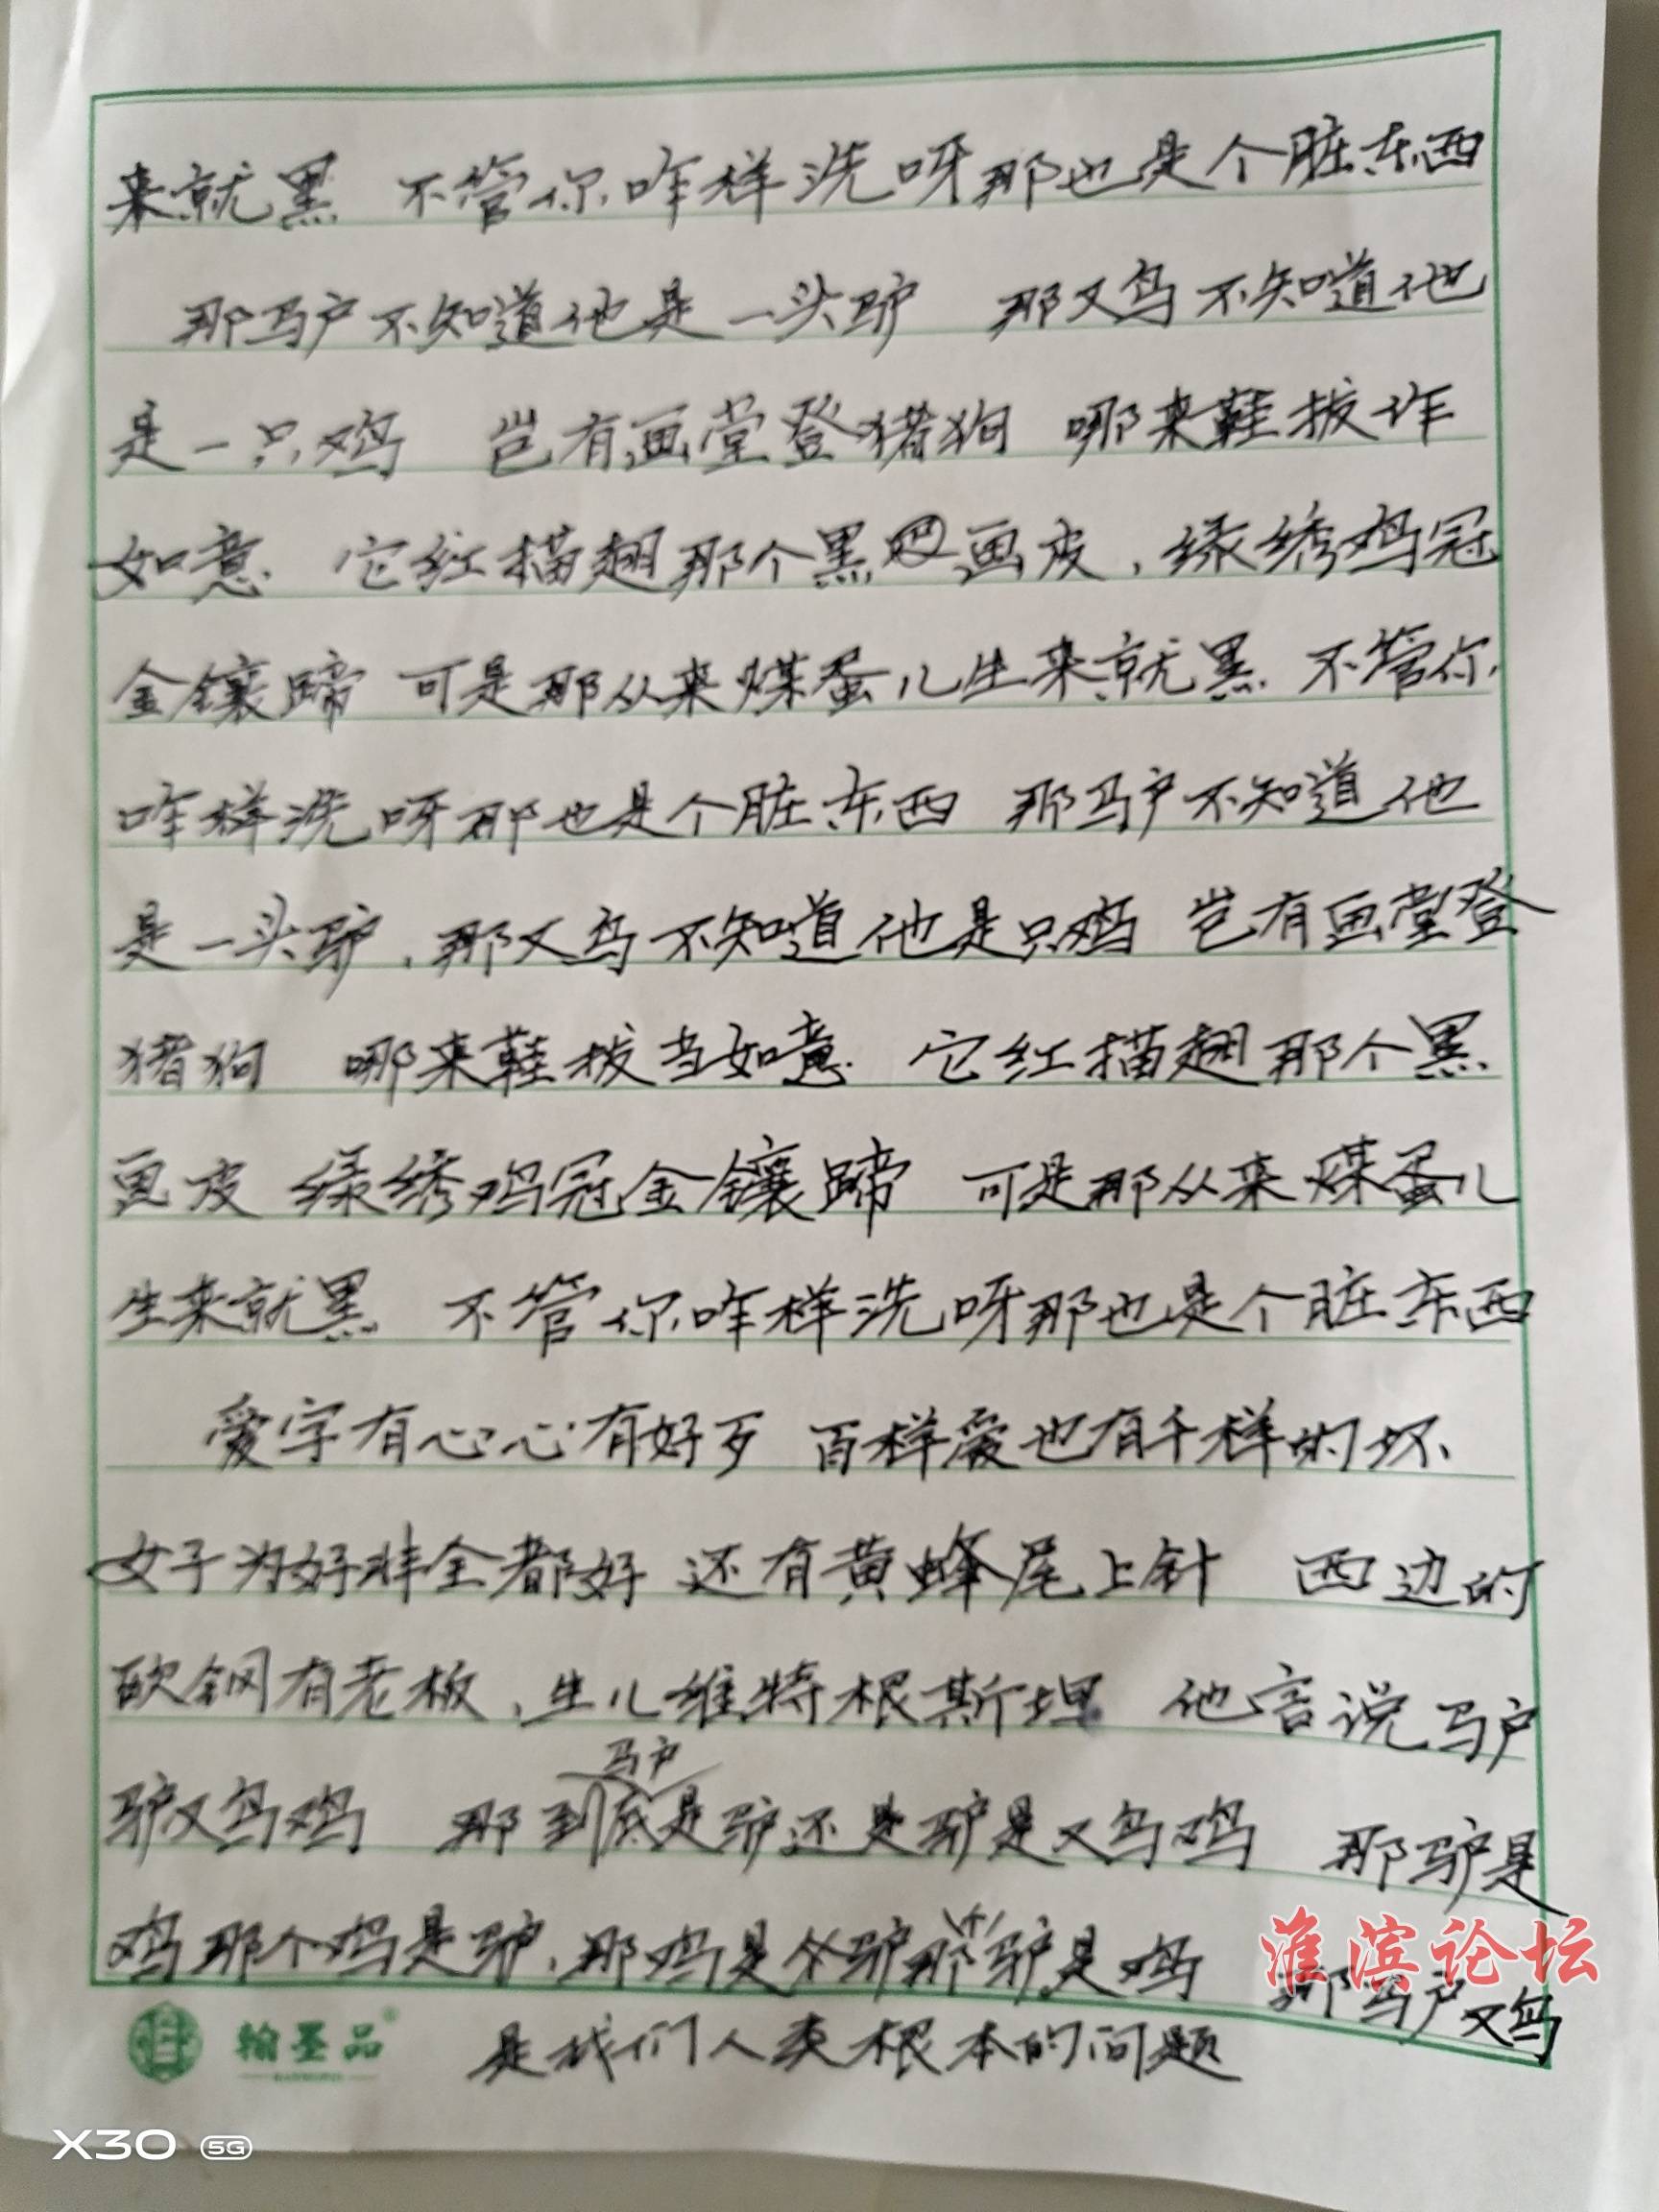 来就黑 不管你咋样洗呀那也是个脏东西
那马户不知道他是一头驴 那又鸟不知道他
是一只鸡 岂有画堂登猪狗 哪来鞋拔作
如意 它红描翅那个黑画皮，绿绣鸡冠
金镶蹄 可是那从来煤蛋儿生来就黑 不管你
咋样洗呀那也是个脏东西 那马户不知道他
是一头驴，那又鸟不知道他是只鸡 岂有画堂登
猪狗 哪来鞋拔当如意 它红描翅那个黑
画皮 绿绣鸡冠金镶蹄 可是那从来煤蛋儿
生来就黑 不管你咋样洗呀那也是个脏东西
爱字有心心有好歹 百样爱也有千样的坏
女子为好非全都好 还有黄蜂尾上针 西边的
欧钢有老板，生儿维特根斯坦 他言说马户
马户
驴又鸟鸡 那到底是驴还是驴是又鸟鸡 那驴是
鸡那个鸡是驴，那鸡是驴那个驴是鸡 那马户又鸟
是我们人类根本的问题
翰墨品
淮滨论坛
X30 5G